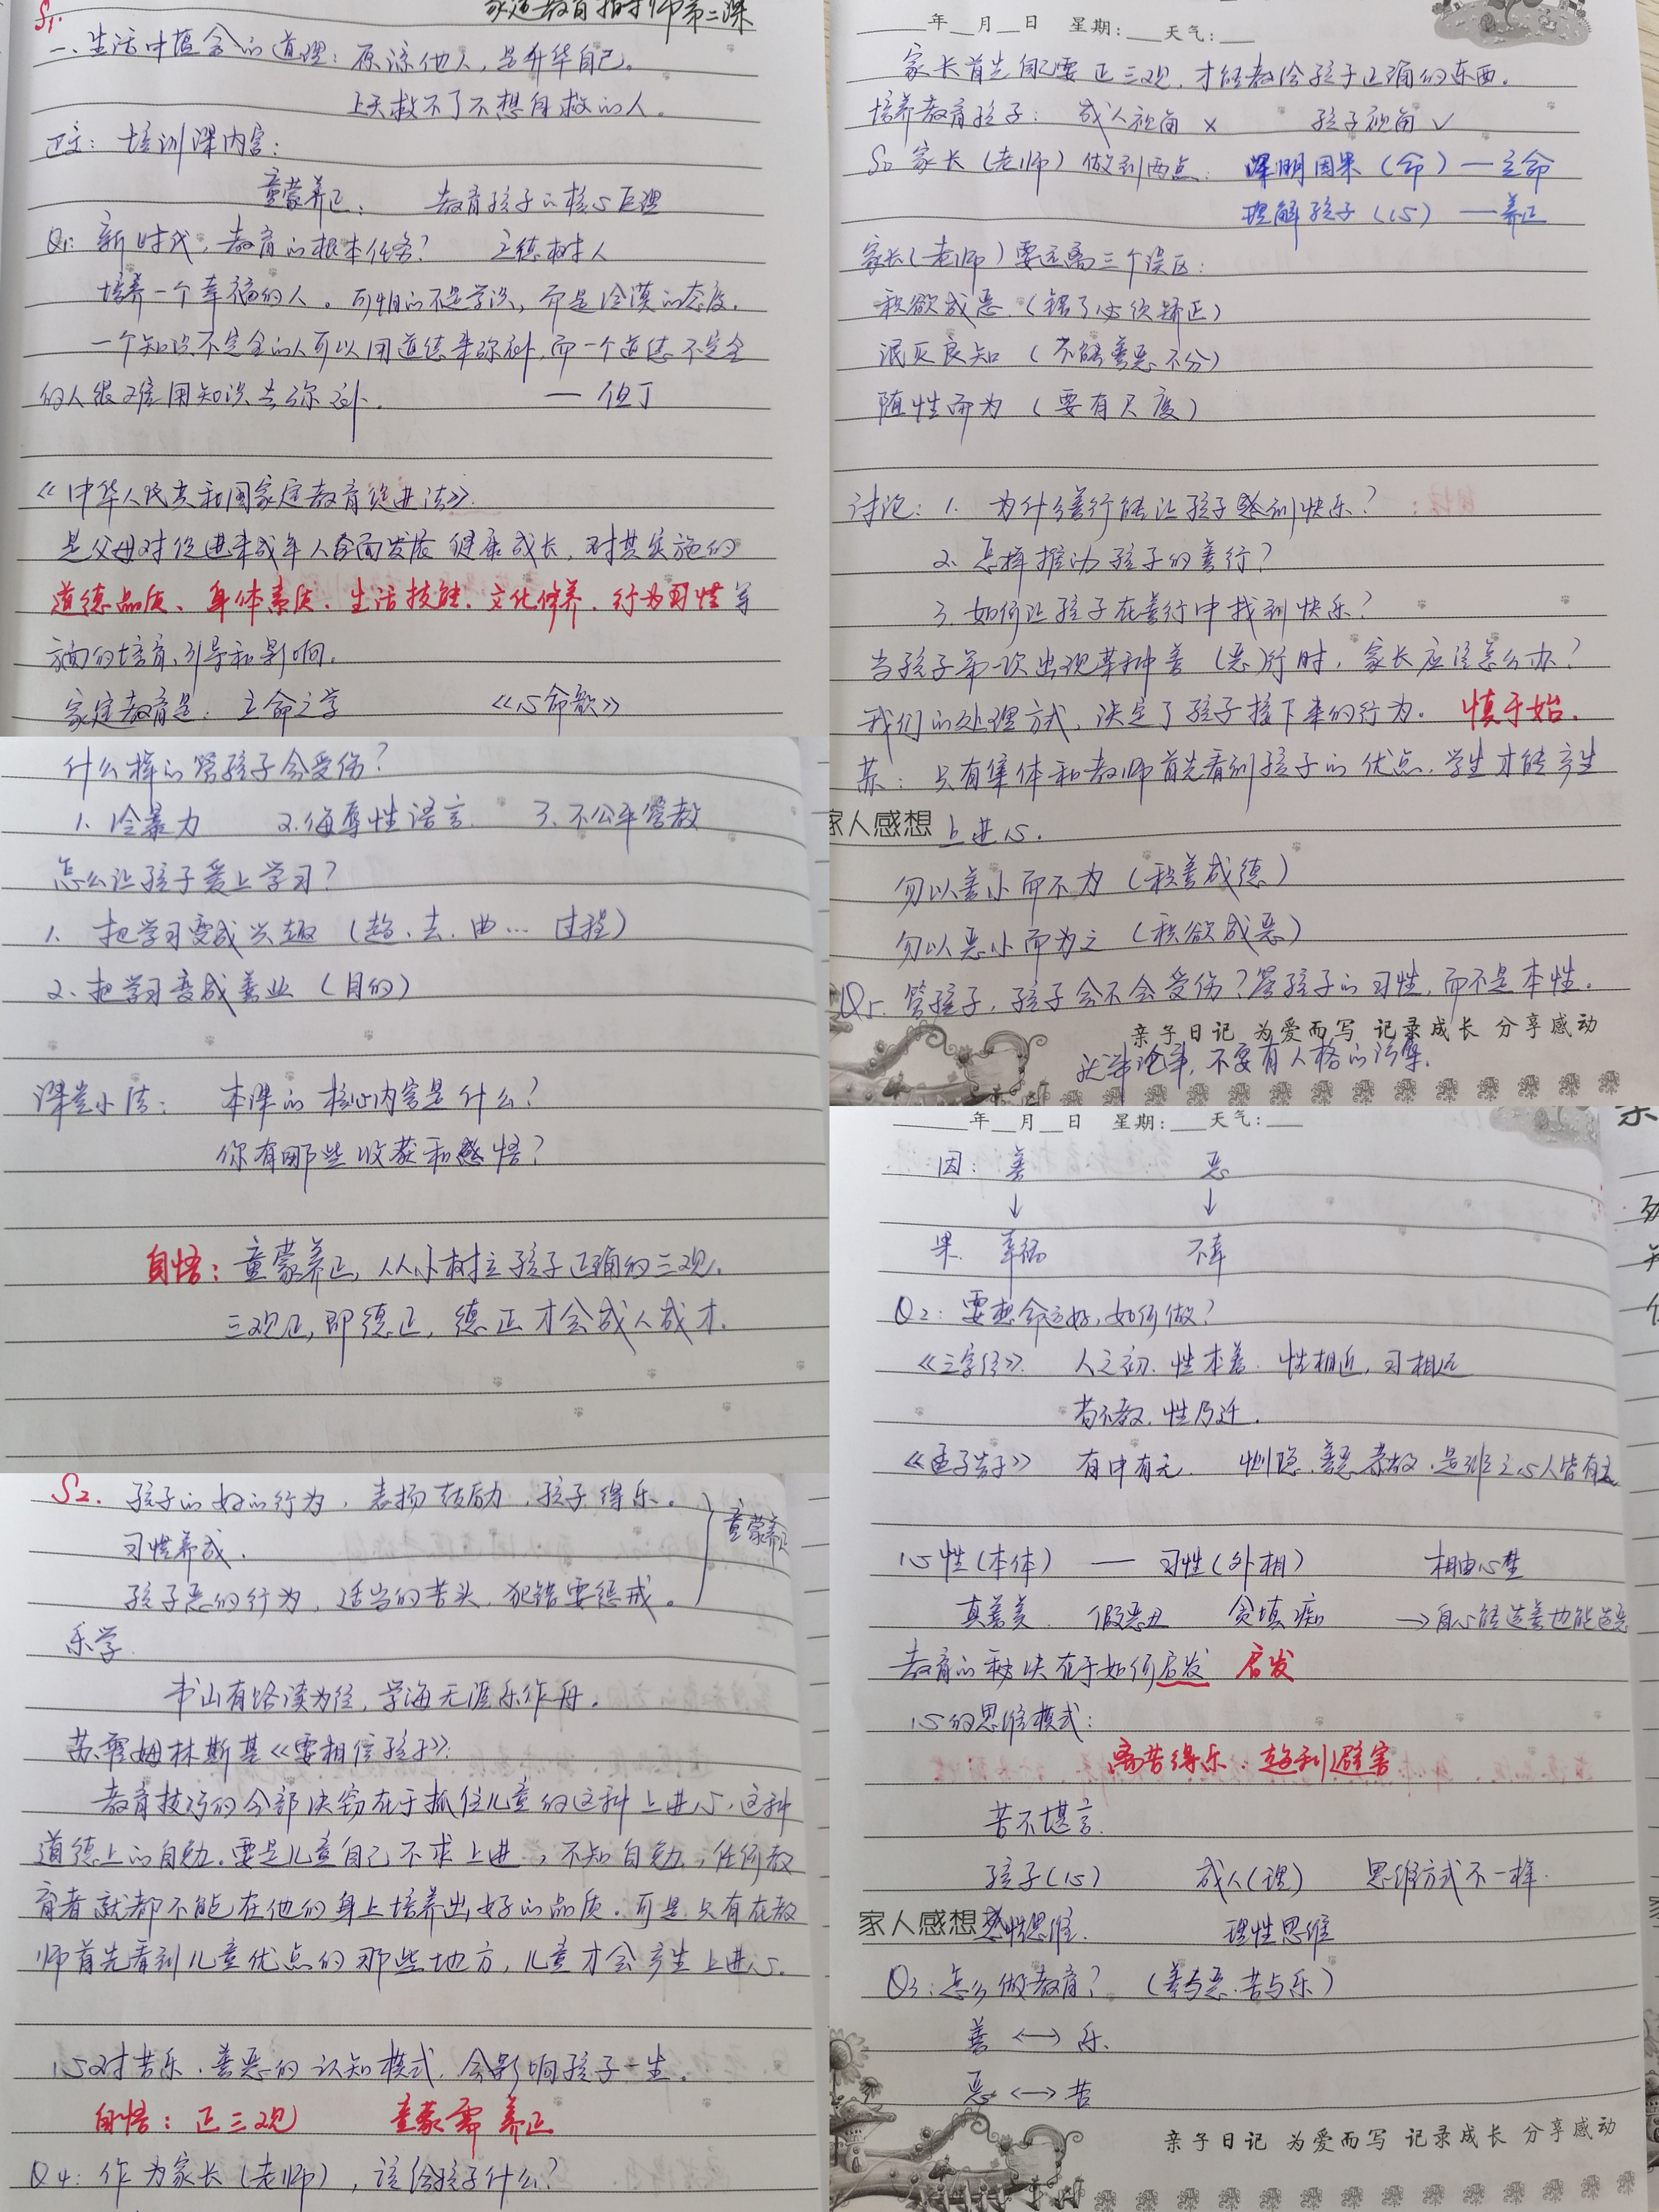 S1.
家庭教育指导师第二课
一、生活中蕴含的道理：原谅他人，是升华自己。
上天救不了不想自救的人。
正文：培训课内容：
童蒙养正： 教育孩子的核心原理
Q1: 新时代，教育的根本任务？ 立德树人
培养一个幸福的人。可怕的不是学渣，而是冷漠的态度。
一个知识不完全的人可以用道德来弥补，而一个道德不完全
的人很难用知识去弥补。 — 但丁
《中华人民共和国家庭教育促进法》.
是父母对促进未成年人全面发展 健康成长，对其实施的
道德品质、身体素质、生活技能、文化修养、行为习性等
方面的培育、引导和影响。
家庭教育是：立命之学 《心命歌》
什么样的管孩子会受伤？
1. 冷暴力 2.侮辱性语言 3. 不公平管教
怎么让孩子爱上学习？
1. 把学习变成兴趣（趋、去、由… 过程）
2. 把学习变成善业（目的）
课堂小结： 本课的核心内容是什么？
你有哪些收获和感悟？
自悟：童蒙养正，从小树立孩子正确的三观。
三观正，即德正，德正才会成人成才.
S2. 孩子的好的行为，表扬鼓励，孩子得乐。
习惯养成.
孩子恶的行为，适当的苦头，犯错要惩戒。
童蒙养正
乐学.
书山有路读为径，学海无涯乐作舟。
苏霍姆林斯基《要相信孩子》:
教育技巧的全部决窍在于抓住儿童的这种上进心，这种
道德上的自勉。要是儿童自己不求上进，不知自勉，任何教
育者就都不能在他们身上培养出好的品质。可是只有在教
师首先看到儿童优点的那些地方，儿童才会产生上进心.
心对苦乐、善恶的认知模式，会影响孩子一生。
自悟：正三观 童蒙需养正
Q4: 作为家长（老师），该给孩子什么？
年 月 日 星期: 天气:
家长首先自己要正三观，才能教给孩子正确的东西。
培养教育孩子： 成人视角 × 孩子视角 ✓
So 家长（老师）做到两点： 深明因果（命）— 立命
理解孩子（心） — 养正
家长（老师）要远离三个误区：
积欲成恶（错了必须矫正）
泯灭良知（不能善恶不分）
随性而为（要有尺度）
讨论：1. 为什么善行能让孩子感到快乐？
2. 怎样推动孩子的善行？
3. 如何让孩子在善行中找到快乐？
当孩子第一次出现某种善（恶）行时，家长应该怎么办？
我们的处理方式，决定了孩子接下来的行为。 慎于始.
苏：只有集体和教师首先看到孩子的优点，学生才能产生
家人感想 上进心.
勿以善小而不为（积善成德）
勿以恶小而为之（积欲成恶）
Q5. 管孩子，孩子会不会受伤？管孩子的习性，而不是本性。
亲子日记 为爱而写 记录成长 分享感动
就事论事，不要有人格的污辱.
年 月 日 星期: 天气:
因: 善 恶
↓ ↓
果. 幸福 不幸
Q2: 要想命运好，如何做？
《三字经》. 人之初，性本善. 性相近，习相远
苟不教，性乃迁.
《孟子告子》 有中有无. 恻隐、羞恶、恭敬、是非之心人皆有之
心性（本体） — 习性（外相） 相由心生
真善美. 假恶丑 贪嗔痴 → 自心能造善也能造恶
教育的秘诀在于如何启发 启发
心的思维模式：
离苦得乐、趋利避害
苦不堪言.
孩子（心） 成人（理） 思维方式不一样.
家人感想 感性思维. 理性思维
Q3: 怎么做教育？（善与恶、苦与乐）
善 ⟷ 乐.
恶 ⟷ 苦
亲子日记 为爱而写 记录成长 分享感动